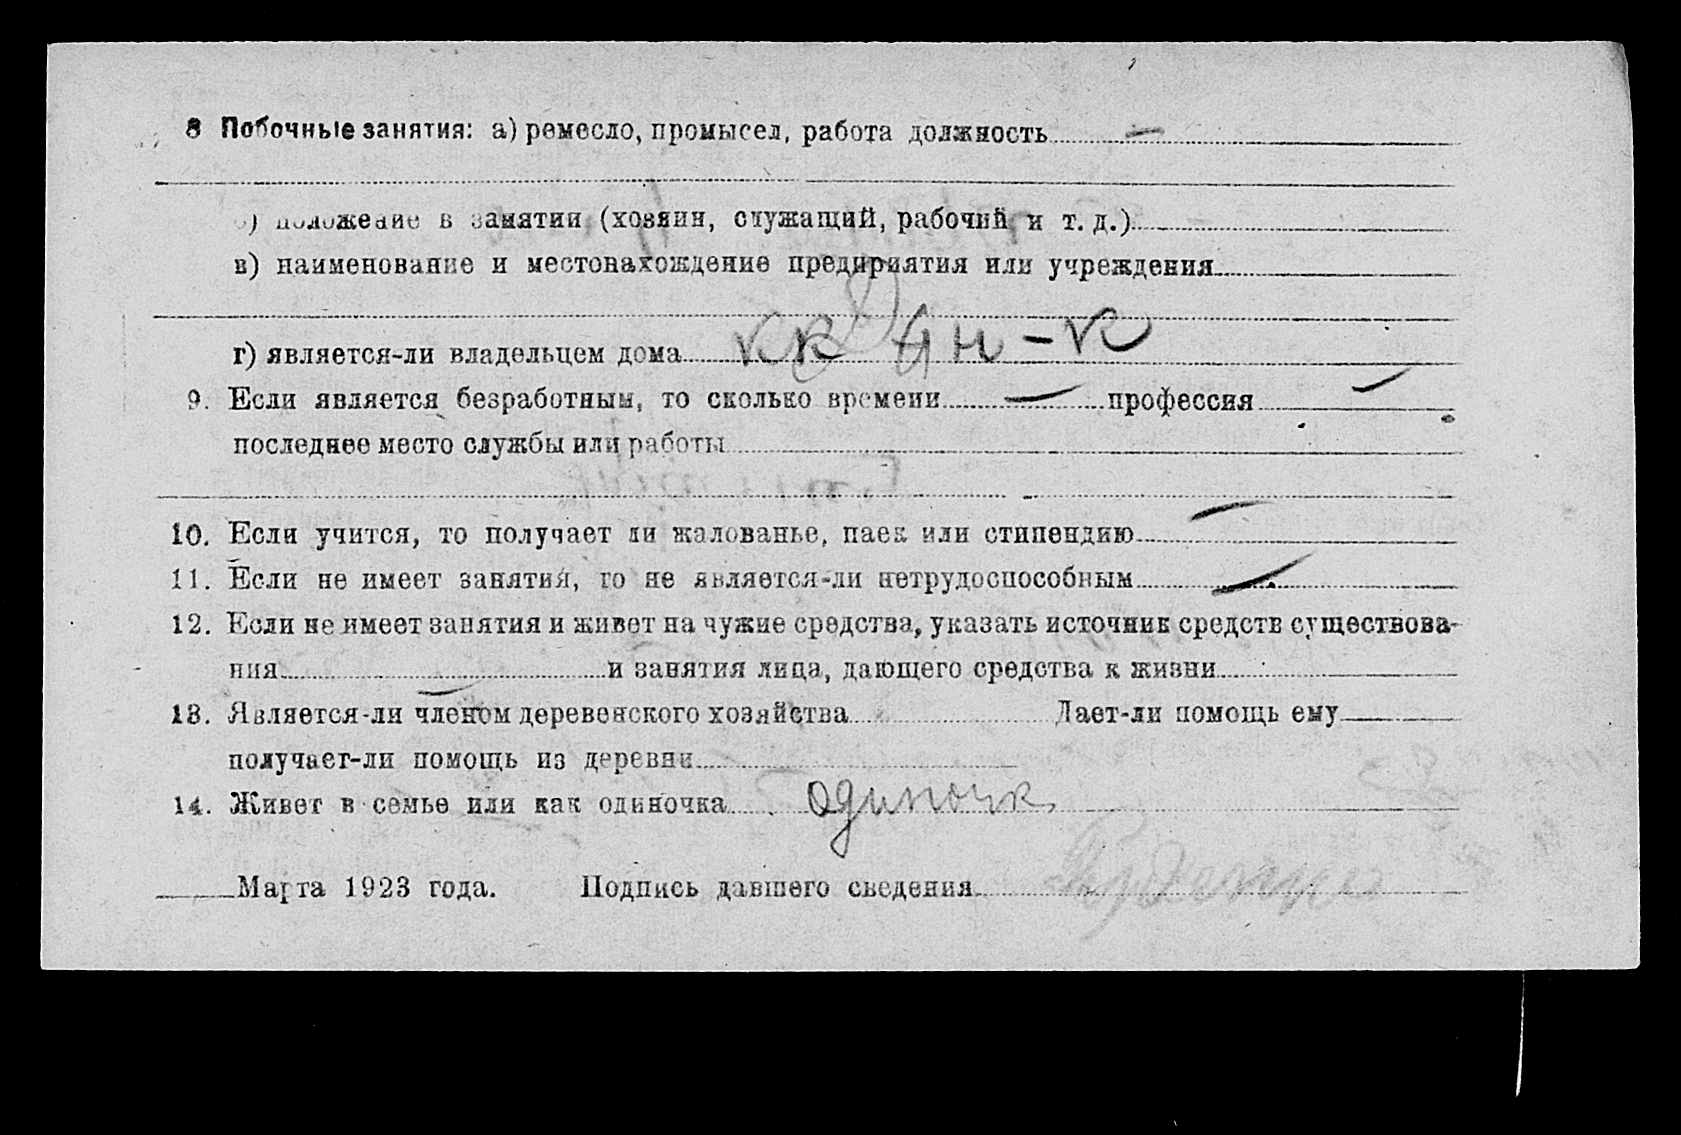 8 Побочные занятия: а) ремесло, промысел, работа должность —
б) положение в занятии (хозяин, служащий, рабочий и т. д.)
в) наименование и местонахождение предприятия или учреждения
г) является-ли владельцем дома
9. Если является безработным, то сколько времени — профессия —
последнее место службы или работы
10. Если учится, то получает ли жалованье, паек или стипендию —
11. Если не имеет занятий, то не является-ли нетрудоспособным —
12. Если не имеет занятия и живет на чужие средства, указать источник средств существова-
ния и занятия лица, дающего средства к жизни
13. Является-ли членом деревенского хозяйства Дает-ли помощь ему
получает-ли помощь из деревни
14. Живет в семье или как одиночка одиночк
Марта 1923 года. Подпись давшего сведения